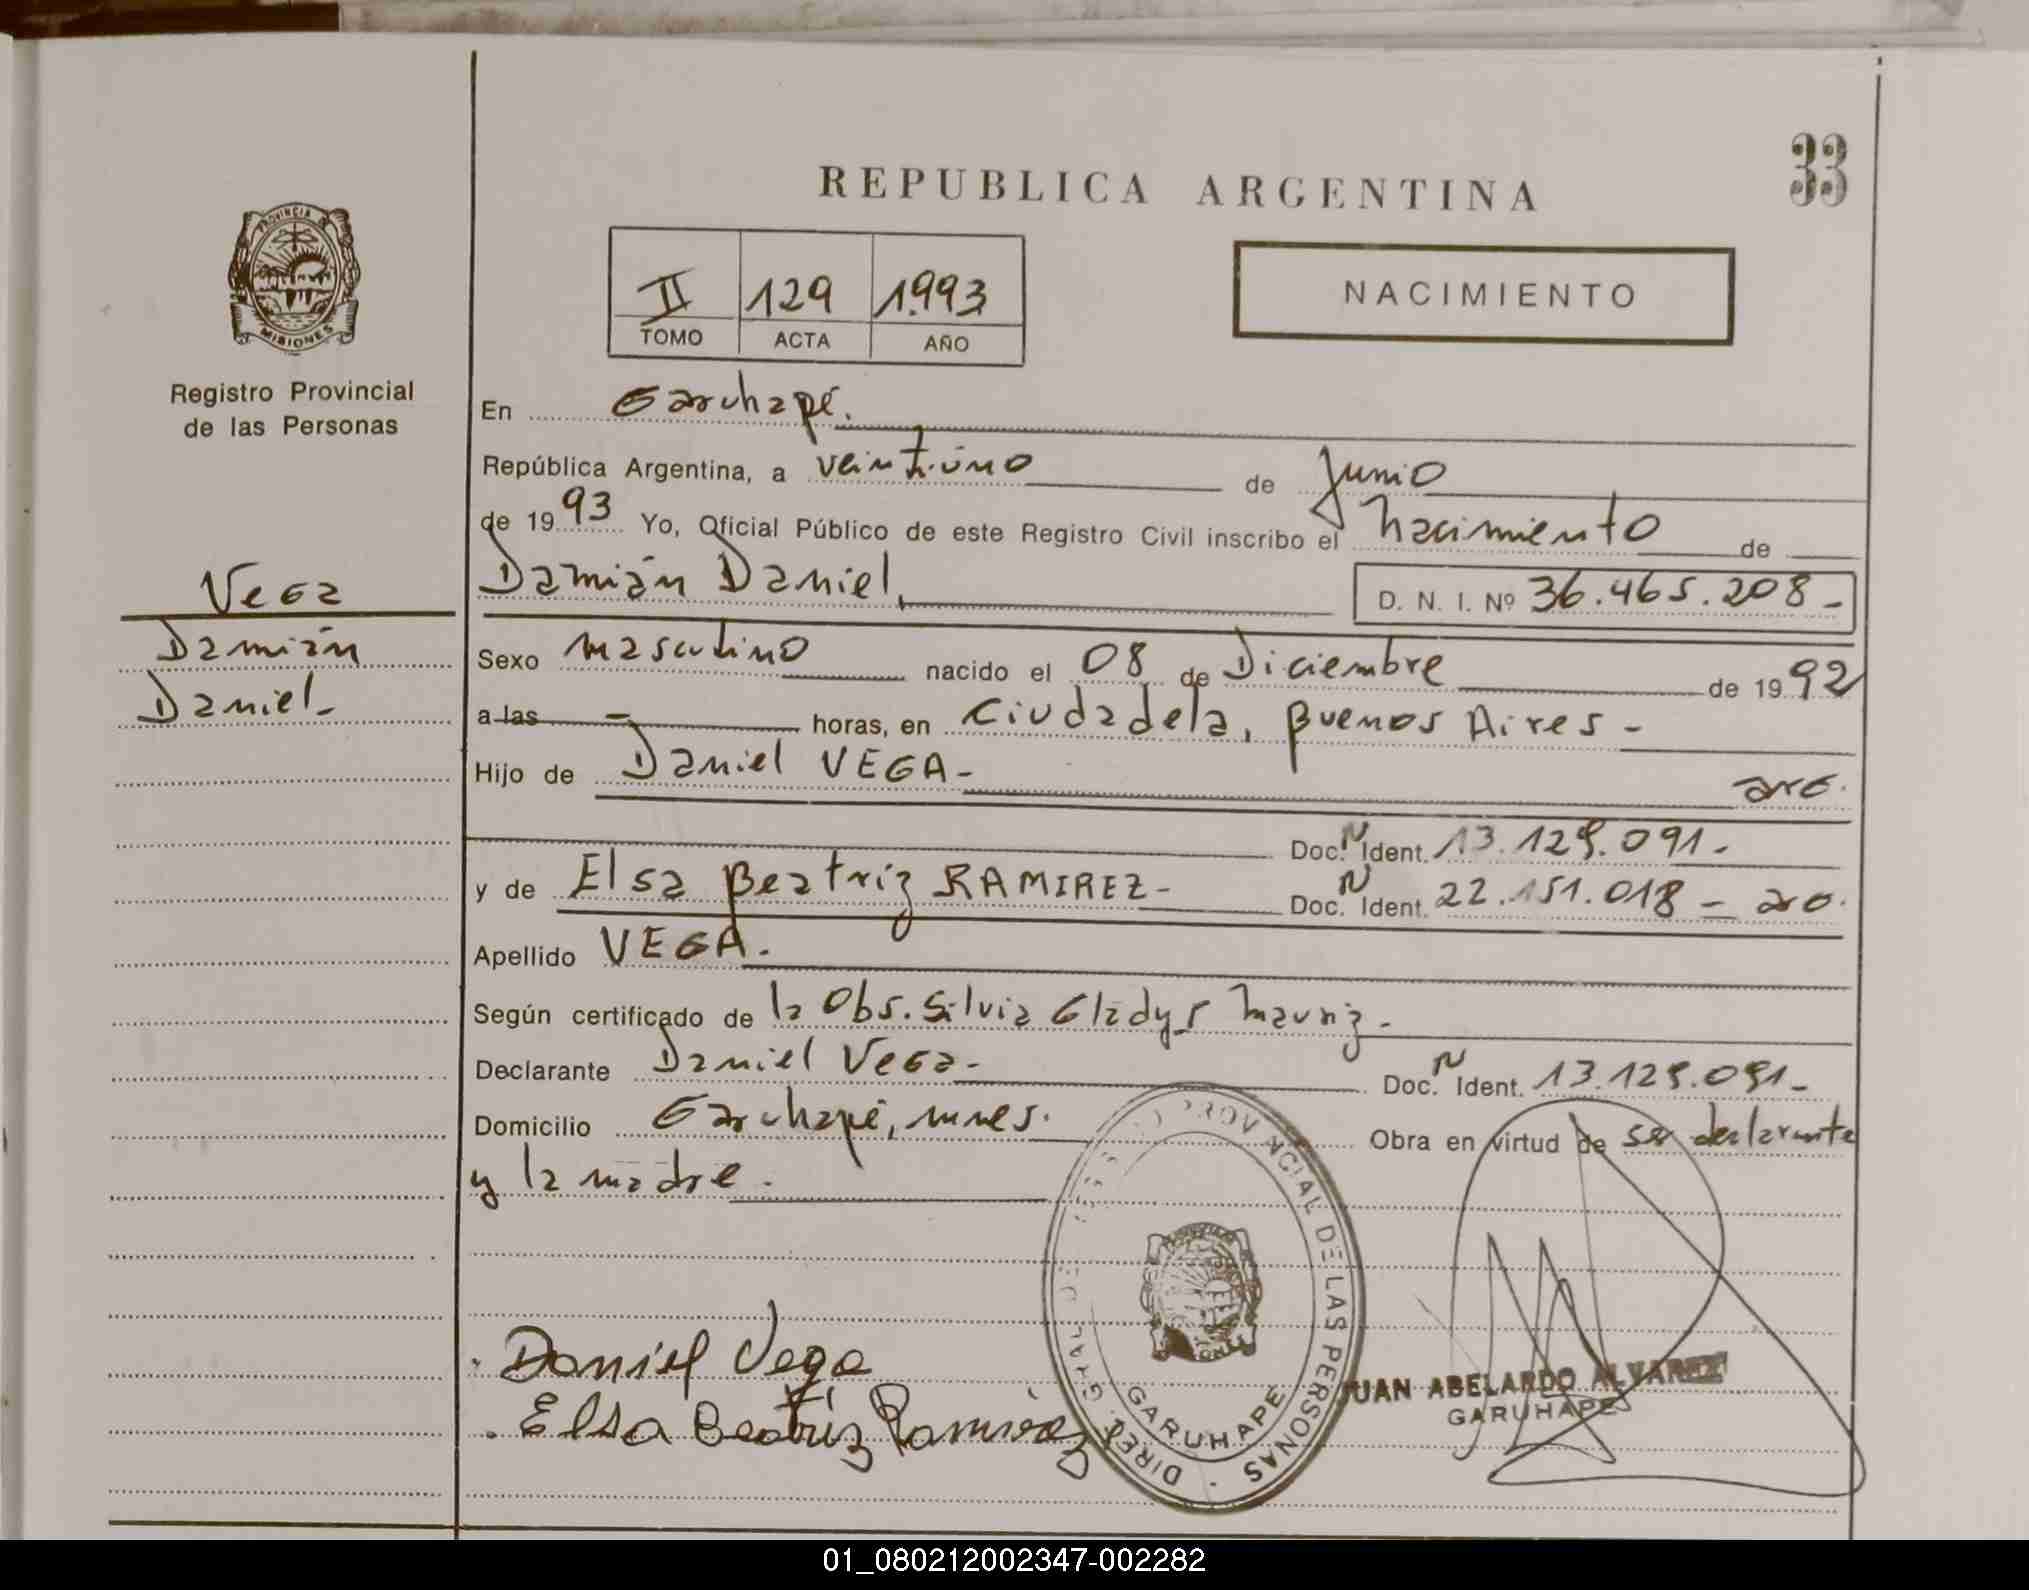 33
REPUBLICA ARGENTINA
PROVINCIA DE
MISIONES
II 129 1.993
TOMO ACTA AÑO
NACIMIENTO
Registro Provincial
de las Personas
En Garuhapé.
República Argentina, a veintiuno de Junio
de 1993 Yo, Oficial Público de este Registro Civil inscribo el Nacimiento de
Vega
Damián Daniel, D. N. I. Nº 36.465.208-
Damián
Sexo masculino nacido el 08 de Diciembre de 1992
Daniel-
a las - horas, en Ciudadela, Buenos Aires-
Hijo de Daniel VEGA- arg.
Doc. N Ident. 13.129.091-
y de Elsa Beatriz RAMIREZ- Doc. N Ident. 22.151.018- arg.
Apellido VEGA.
Según certificado de la Obs. Silvia Gladys Mauriz-
Declarante Daniel Vega- Doc. N Ident. 13.129.091-
Domicilio Garuhapé, mnes. Obra en virtud de ser declarante
y la madre.
PROVINCIAL DE LAS PERSONAS
DIREC. GRAL.
GARUHAPE
Daniel Vega
Elsa Beatriz Ramirez
JUAN ABELARDO ALVAREZ
GARUHAPE
01_080212002347-002282